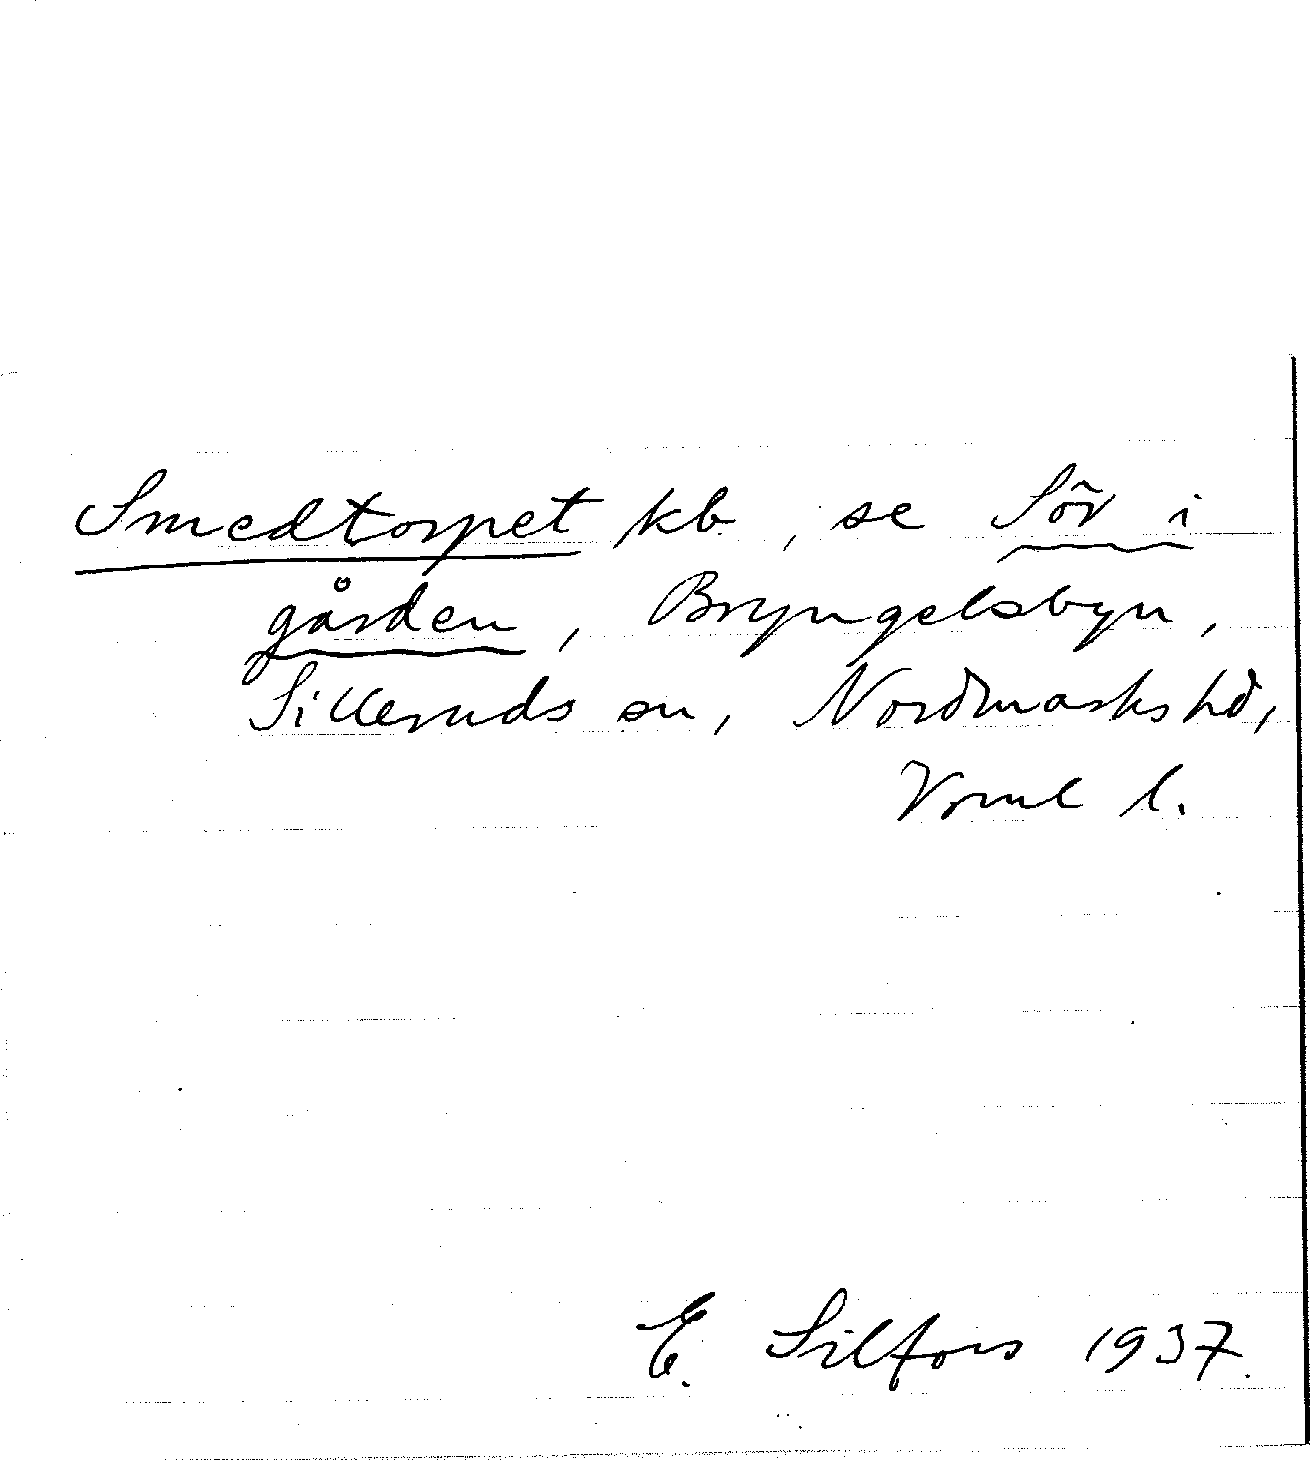 Smedtorpet kb, se Sör i
gården, Bryngelsbyn,
Silleruds sn, Nordmarks hd,
Vrml l.
E. Silfors 1937.